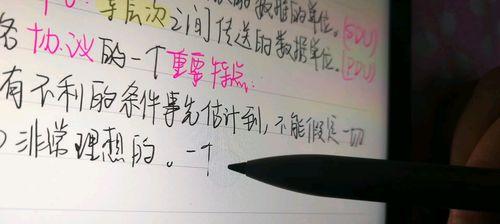 等层次之间传送的数据的单位。(SDU)
层次之间传送的数据单位。(PDU)
协议的一个重要特点:
有不利的条件事先估计到,不能假定一切
非常理想的。一个